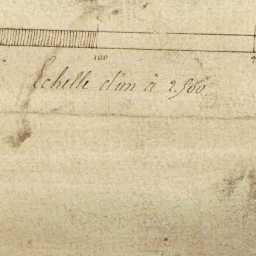 100
Echelle d'un à 2500